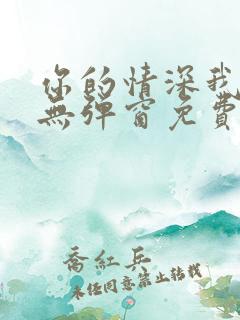 你的情深我
無彈窗免費
喬紅兵
未經同意禁止轉載